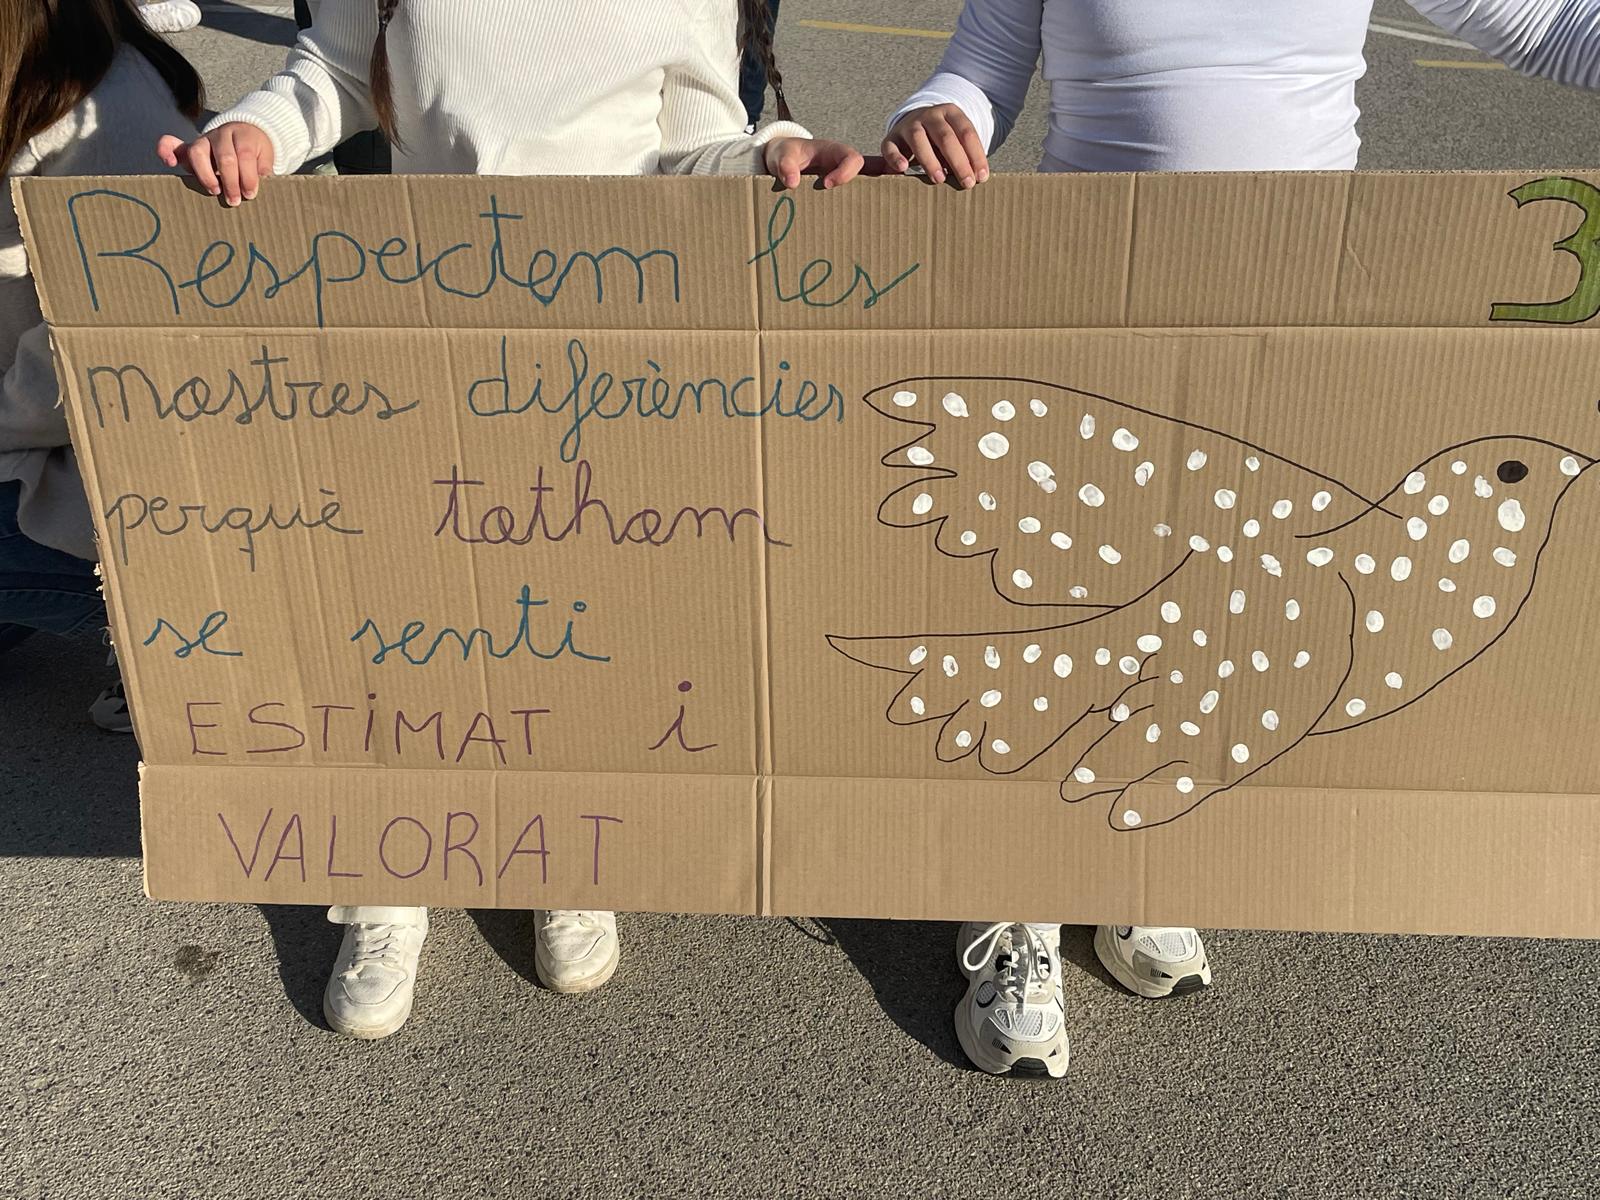 Respectem les
nostres diferències
perquè tothom
se senti
ESTiMAT i
VALORAT
3